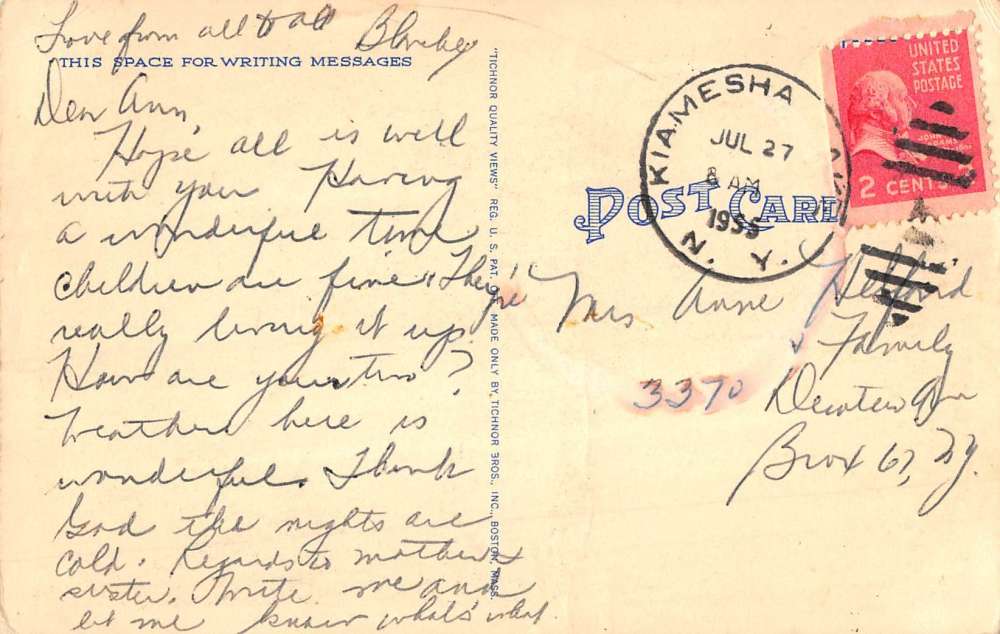 Love from all to all
THIS SPACE FOR WRITING MESSAGES
Dear Ann,
Hope all is well
with you Having
a wonderful time
children are fine "They're"
really living it up.
How are your two?
Weather here is
wonderful. Thank
God the nights are
cold. Regards to mother &
sister. Write me and
let me know what's what.
"TICHNOR QUALITY VIEWS" REG. U. S. PAT. OFF. MADE ONLY BY TICHNOR BROS., INC., BOSTON, MASS.
POST CARD
KIAMESHA
JUL 27
8 AM
1955
N. Y.
UNITED
STATES
POSTAGE
2 CENTS
Mrs Anne
& Family
3370 Decatur Ave
Bronx 67, NY.